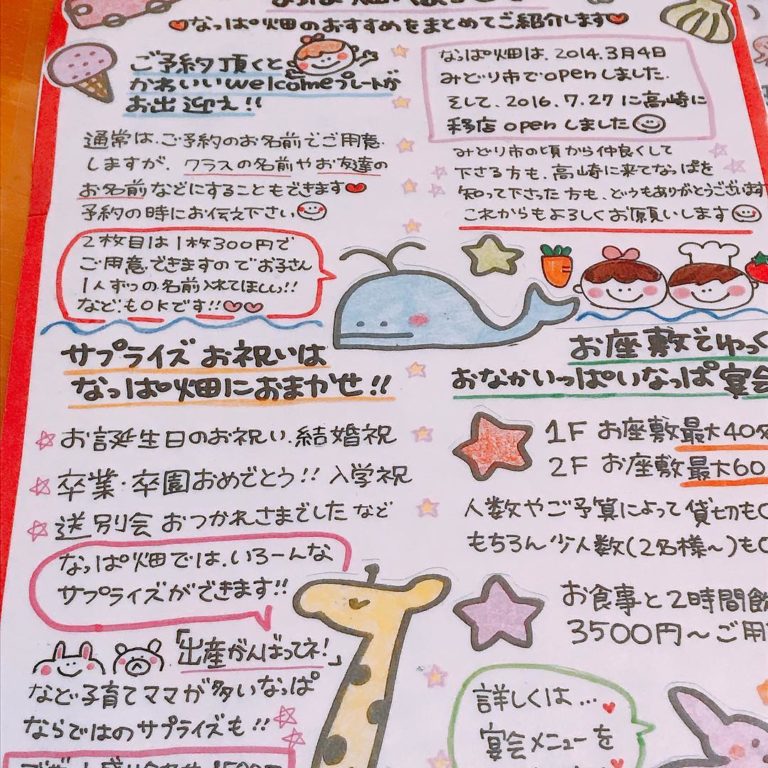 ♥なっぱ畑のおすすめをまとめてご紹介します♥
ご予約頂くと
かわいいwelcomeプレートが
お出迎え!!
通常は、ご予約のお名前でご用意
しますが、クラスの名前やお友達の
お名前などにすることもできます♥
予約の時にお伝え下さい
2枚目は1枚300円で
ご用意できますのでお子さん
1人ずつの名前入れてほしい!!
などもOKです!!♡♡
なっぱ畑は、2014.3月4日
みどり市でopenしました。
そして、2016.7.27に高崎に
移店openしました
みどり市の頃から仲良くして
下さる方も、高崎に来てなっぱを
知って下さった方も、どうもありがとうございます
これからもよろしくお願いします
サプライズお祝いは
なっぱ畑におまかせ!!
☆お誕生日のお祝い、結婚祝
☆卒業・卒園おめでとう!!入学祝
☆送別会おつかれさまでしたなど
なっぱ畑では、いろーんな
サプライズができます!!
「出産がんばってネ!」
など子育てママが多いなっぱ
ならではのサプライズも!!
お座敷でゆっく
おなかいっぱいなっぱ宴会
1F お座敷最大40名
2F お座敷最大60
人数やご予算によって貸切も
もちろん少人数(2名様〜)も
お食事と2時間飲
3500円〜ご用
詳しくは…
宴会メニューを